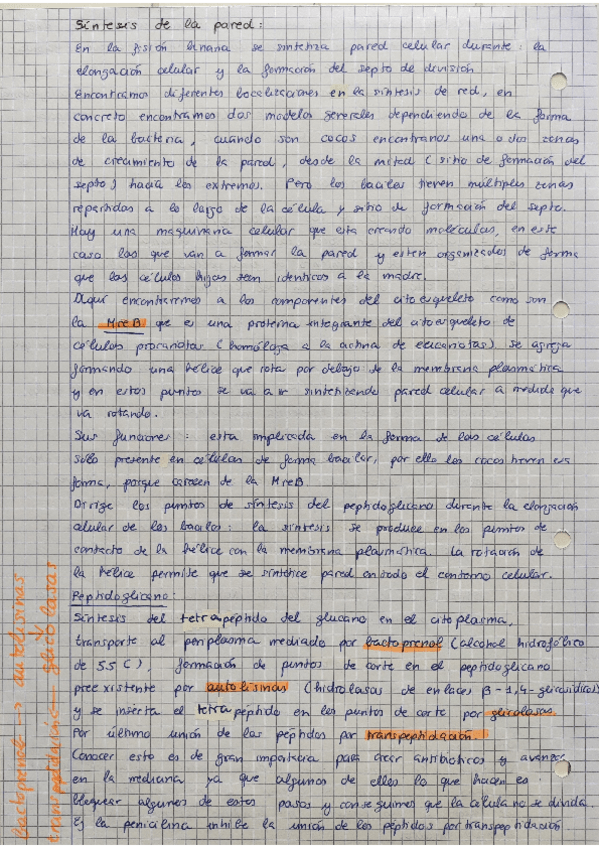 Síntesis de la pared:
En la fisión binaria se sintetiza pared celular durante: la
elongación celular y la formación del septo de división
Encontramos diferentes localizaciones en la síntesis de red, en
concreto encontramos dos modelos generales dependiendo de la forma
de la bacteria, cuando son cocos encontramos una o dos zonas
de crecimiento de la pared, desde la mitad (sitio de formación del
septo) hacia los extremos. Pero los bacilos tienen múltiples zonas
repartidas a lo largo de la célula y sitio de formación del septo.
Hay una maquinaria celular que esta creando moléculas, en este
caso las que van a formar la pared y esten organizados de forma
que las células hijas sean identicas a la madre.
Aquí encontraremos a los componentes del citoesqueleto como son
la MreB que es una proteína integrante del citoesqueleto de
células procariotas (homóloga a la actina de eucariotas) se agrega
formando una hélice que rota por debajo de la membrana plasmática
y en estos puntos se va a ir sintetizando pared celular a medida que
va rotando.
Sus funciones: esta implicada en la forma de las células
sólo presente en células de forma bacilar, por ello los cocos tienen esa
forma, porque carecen de la MreB.
Dirige los puntos de síntesis del peptidoglicano durante la elongación
celular de los bacilos: la síntesis se produce en los puntos de
contacto de la hélice con la membrana plasmática. La rotación de
la hélice permite que se sintetice pared en todo el contorno celular.
Peptidoglicano:
Síntesis del tetrapéptido del glucano en el citoplasma,
transporte al periplasma mediado por bactoprenol (alcohol hidrofólico
de 55 C), formación de puntos de corte en el peptidoglicano
preexistente por autolisinas (hidrolasas de enlaces β-1,4-glicosídicos)
y se inserta el tetrapéptido en los puntos de corte por glicolasas.
Por último unión de los péptidos por transpeptidación.
Conocer esto es de gran importancia para crear antibioticos y avanzar
en la medicina ya que algunos de ellos lo que hacen es
bloquear algunos de estos pasos y conseguimos que la célula no se divida.
Ej la penicilina inhibe la unión de los péptidos por transpeptidación.
Bactoprenol → autolisinas
transpeptidación ← glicolasas